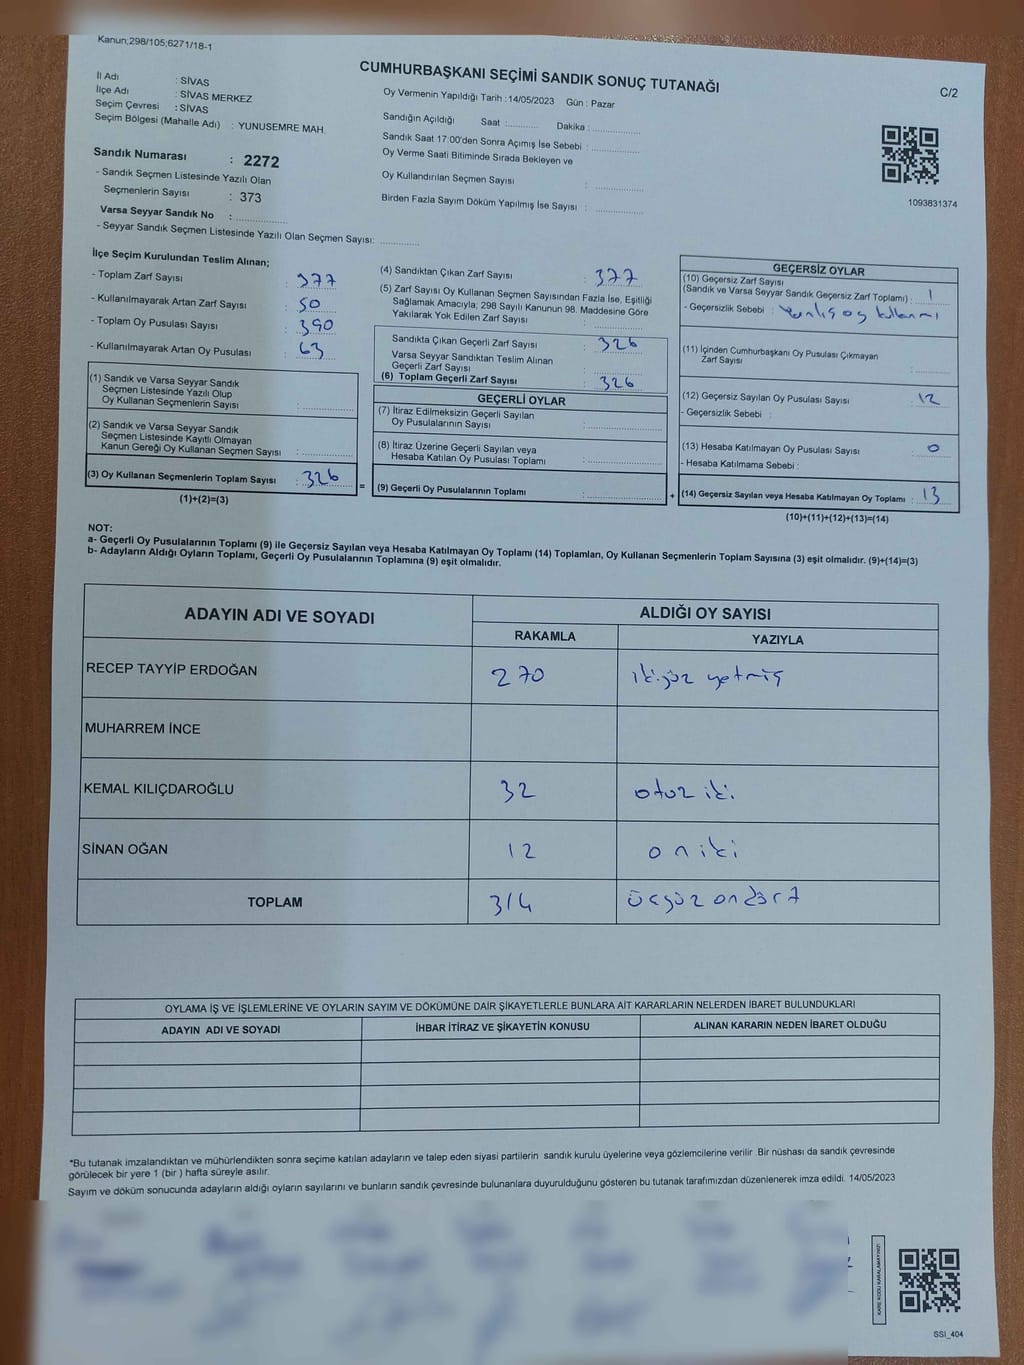 Kanun;298/105;6271/18-1
CUMHURBAŞKANI SEÇİMİ SANDIK SONUÇ TUTANAĞI
C/2
İl Adı : SİVAS
İlçe Adı : SİVAS MERKEZ
Seçim Çevresi : SİVAS
Seçim Bölgesi (Mahalle Adı) : YUNUSEMRE MAH.
Sandık Numarası : 2272
- Sandık Seçmen Listesinde Yazılı Olan
Seçmenlerin Sayısı : 373
Varsa Seyyar Sandık No :
- Seyyar Sandık Seçmen Listesinde Yazılı Olan Seçmen Sayısı:
Oy Vermenin Yapıldığı Tarih : 14/05/2023 Gün : Pazar
Sandığın Açıldığı Saat : Dakika :
Sandık Saat 17:00'den Sonra Açımış İse Sebebi :
Oy Verme Saati Bitiminde Sırada Bekleyen ve
Oy Kullandırılan Seçmen Sayısı :
Birden Fazla Sayım Döküm Yapılmış İse Sayısı :
1093831374
İlçe Seçim Kurulundan Teslim Alınan;
- Toplam Zarf Sayısı : 377
- Kullanılmayarak Artan Zarf Sayısı : 50
- Toplam Oy Pusulası Sayısı : 390
- Kullanılmayarak Artan Oy Pusulası : 63
(1) Sandık ve Varsa Seyyar Sandık
Seçmen Listesinde Yazılı Olup
Oy Kullanan Seçmenlerin Sayısı :
(2) Sandık ve Varsa Seyyar Sandık
Seçmen Listesinde Kayıtlı Olmayan
Kanun Gereği Oy Kullanan Seçmen Sayısı :
(3) Oy Kullanan Seçmenlerin Toplam Sayısı : 326
(1)+(2)=(3)
(4) Sandıktan Çıkan Zarf Sayısı : 377
(5) Zarf Sayısı Oy Kullanan Seçmen Sayısından Fazla İse, Eşitliği
Sağlamak Amacıyla; 298 Sayılı Kanunun 98. Maddesine Göre
Yakılarak Yok Edilen Zarf Sayısı :
Sandıkta Çıkan Geçerli Zarf Sayısı : 326
Varsa Seyyar Sandıktan Teslim Alınan
Geçerli Zarf Sayısı :
(6) Toplam Geçerli Zarf Sayısı : 326
GEÇERLİ OYLAR
(7) İtiraz Edilmeksizin Geçerli Sayılan
Oy Pusulalarının Sayısı :
(8) İtiraz Üzerine Geçerli Sayılan veya
Hesaba Katılan Oy Pusulası Toplamı :
= (9) Geçerli Oy Pusulalarının Toplamı : +
GEÇERSİZ OYLAR
(10) Geçersiz Zarf Sayısı
(Sandık ve Varsa Seyyar Sandık Geçersiz Zarf Toplamı) : 1
- Geçersizlik Sebebi : Yanlış oy kullanmı
(11) İçinden Cumhurbaşkanı Oy Pusulası Çıkmayan
Zarf Sayısı :
(12) Geçersiz Sayılan Oy Pusulası Sayısı : 12
- Geçersizlik Sebebi :
(13) Hesaba Katılmayan Oy Pusulası Sayısı : 0
- Hesaba Katılmama Sebebi :
(14) Geçersiz Sayılan veya Hesaba Katılmayan Oy Toplamı : 13
(10)+(11)+(12)+(13)=(14)
NOT:
a- Geçerli Oy Pusulalarının Toplamı (9) ile Geçersiz Sayılan veya Hesaba Katılmayan Oy Toplamı (14) Toplamları, Oy Kullanan Seçmenlerin Toplam Sayısına (3) eşit olmalıdır. (9)+(14)=(3)
b- Adayların Aldığı Oyların Toplamı, Geçerli Oy Pusulalarının Toplamına (9) eşit olmalıdır.
ADAYIN ADI VE SOYADI ALDIĞI OY SAYISI
RAKAMLA YAZIYLA
RECEP TAYYİP ERDOĞAN 270 ikiyüz yetmiş
MUHARREM İNCE
KEMAL KILIÇDAROĞLU 32 otuz iki
SİNAN OĞAN 12 on iki
TOPLAM 314 üçyüz ondört
OYLAMA İŞ VE İŞLEMLERİNE VE OYLARIN SAYIM VE DÖKÜMÜNE DAİR ŞİKAYETLERLE BUNLARA AİT KARARLARIN NELERDEN İBARET BULUNDUKLARI
ADAYIN ADI VE SOYADI İHBAR İTİRAZ VE ŞİKAYETİN KONUSU ALINAN KARARIN NEDEN İBARET OLDUĞU
*Bu tutanak imzalandıktan ve mühürlendikten sonra seçime katılan adayların ve talep eden siyasi partilerin sandık kurulu üyelerine veya gözlemcilerine verilir .Bir nüshası da sandık çevresinde
görülecek bir yere 1 (bir ) hafta süreyle asılır.
Sayım ve döküm sonucunda adayların aldığı oyların sayılarını ve bunların sandık çevresinde bulunanlara duyurulduğunu gösteren bu tutanak tarafımızdan düzenlenerek imza edildi. 14/05/2023
KARE KODU KARALAMAYINIZ!
SSI_404